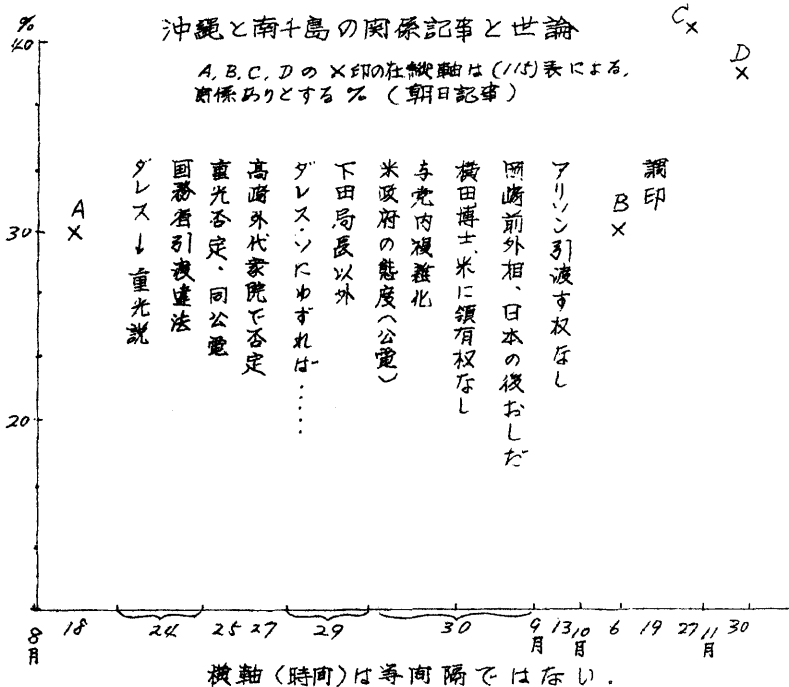 沖縄と南千島の関係記事と世論
A, B, C, D の ×印の在縦軸は (115)表による,
関係ありとする % ( 朝日記事 )
%
40
30
20
A
B
C
D
ダレス→重光説
国務省引渡違法
重光否定、同公電
高崎外代衆院で否定
ダレス・ソにゆずれば……
下田局長以外
米政府の態度(公電)
与党内複雑化
横田博士、米に領有権なし
岡崎前外相、日本の後おしだ
アリソン引渡す権なし
調印
8月 18 24 25 27 29 30 9月 13 10月 6 19 27 11月 30
横軸 (時間) は等間隔ではない.